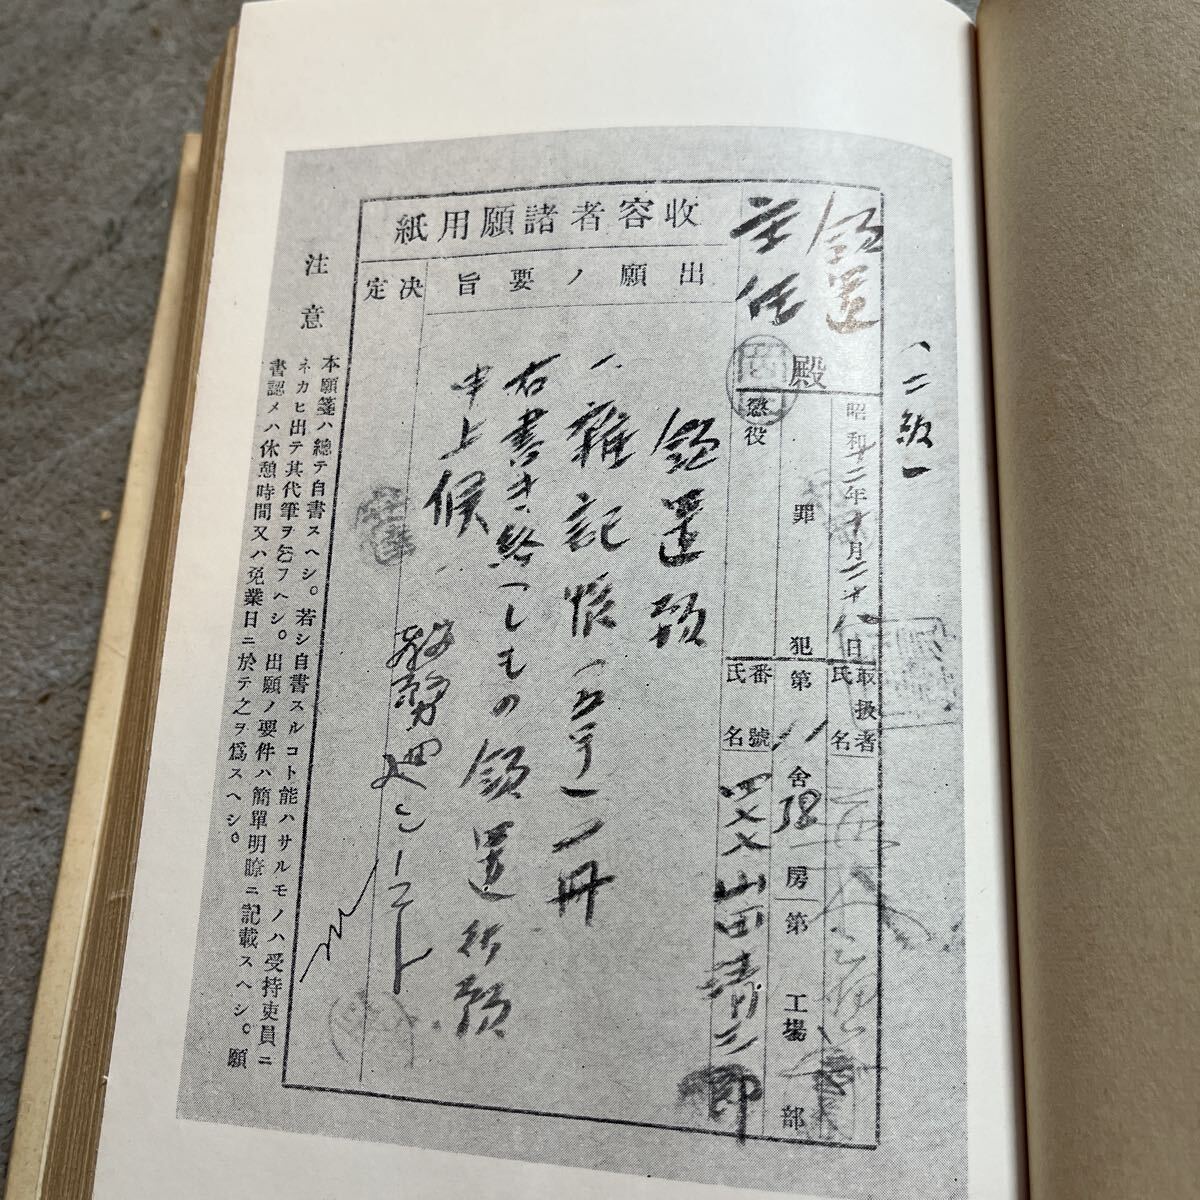 (二級一
領置
主任
殿
昭和十二年十月二十八日
取扱者
氏名
懲役
罪
犯
第11舍38房
第
工場
部
番號
氏名
山田清三郎
收容者諸願用紙
出願ノ要旨
決定
領置願
一、雜記帳(　)一冊
右書き終つしもの領置許願
申上候
注意
本願箋ハ總テ自書スヘシ。若シ自書スルコト能ハサルモノハ受持吏員ニ
ネカヒ出テ其代筆ヲ乞フヘシ。出願ノ要件ハ簡單明瞭ニ記載スヘシ。願
書認メハ休憩時間又ハ免業日ニ於テ之ヲ爲スヘシ。